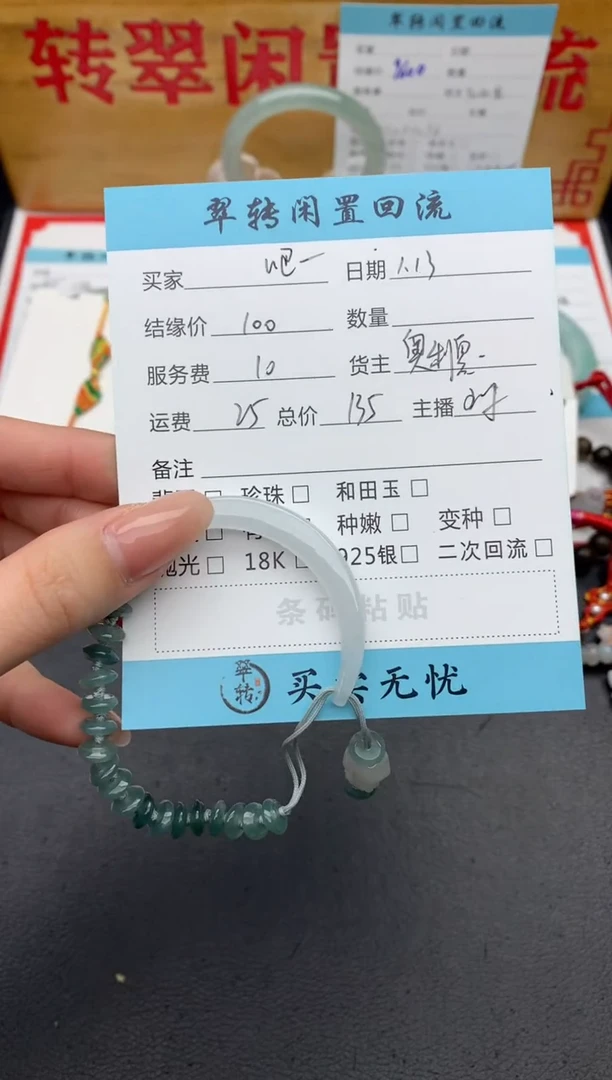 转翠闲置
流
翠转闲置回流
翠转闲置回流
买家 吧一 日期 1.13
结缘价 100 数量
服务费 10 货主
运费 25 总价 135 主播
备注
珍珠 和田玉
种嫩 变种
抛光 18K 925银 二次回流
条码粘贴
翠转 买卖无忧